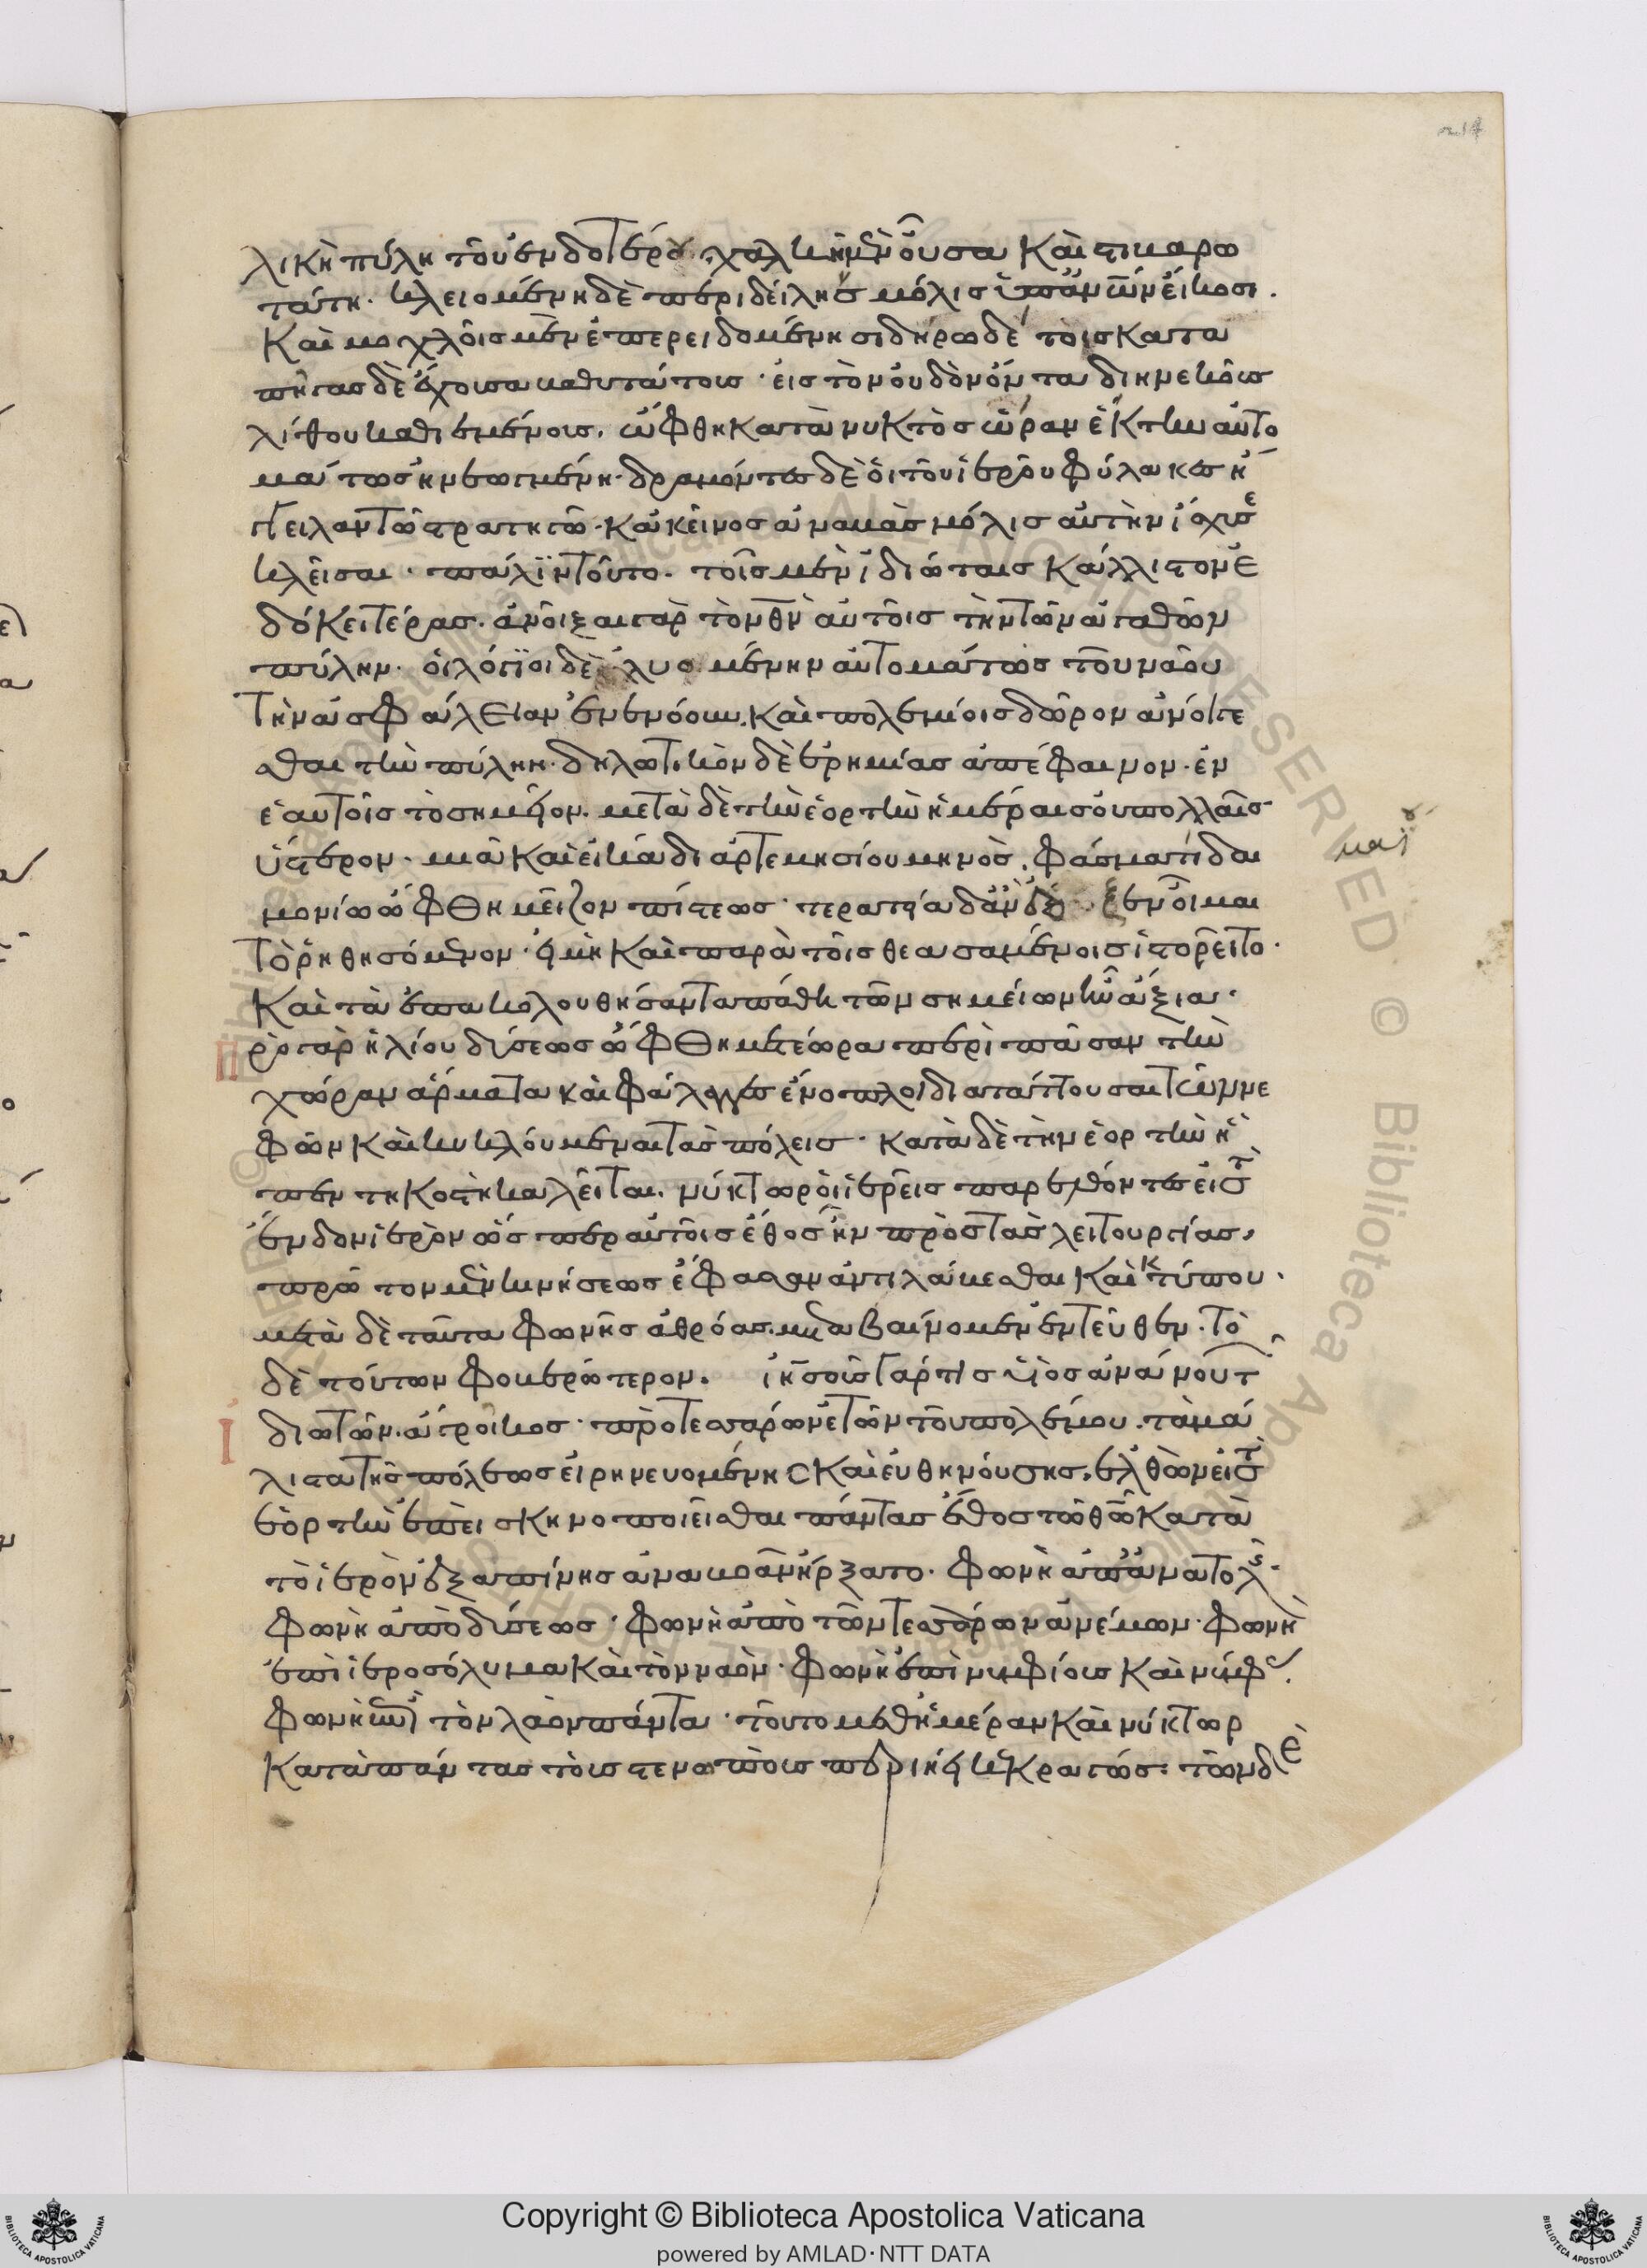 λικὴ πύλη τοῦ ἐνδοτέρου χαλκῆ μὲν οὖσα καὶ στιβαρω
τάτη. κλειομένη δὲ περὶ δείλης μόλις ὑπ' ἀνῶν εἴκοσι.
Καὶ μοχλοῖς μὲν ἐπερειδομένη σιδηρω δέ τοις κατα
πῆγας δὲ ἔχουσα βαθυτάτους. εἰς τὸν οὐδὸν ὄντα διηνεκοῦς
λίθου καθιεμένους. ὤφθη κατὰ νυκτὸς ὥραν ἕκτην αὐτο
μάτως ἠνεωγμένη. δραμόντες δὲ οἱ τοῦ ἱεροῦ φύλακες ἤ
γγειλαν τῶ στρατηγῶ. κἀκεῖνος ἀναβὰς μόλις αὐτὴν ἴσχυσε
κλεῖσαι. πάλιν τοῦτο. τοῖς μὲν ἰδιώταις κάλλιστον ἐ
δόκει τέρας. ἀνοῖξαι γὰρ τὸν θν αὐτοῖς τὴν τῶν ἀγαθῶν
πύλην. οἱ λόγιοι δὲ λυομένην αὐτομάτως τοῦ ναοῦ
τὴν ἀσφάλειαν ἐνενόουν. καὶ πολεμίοις δῶρον ἀνοίγε
σθαι τὴν πύλην. δηλωτικὸν δὲ ἐρημίας ἀπέφαινον. ἐν
ἑαυτοῖς τὸ σημεῖον. μετὰ δὲ τὴν ἑορτὴν ἡμέραις οὐ πολλαῖς
ὕστερον. μιᾶ καὶ εἰκάδι ἀρτεμησίου μηνὸς. φάσμα τι δαι
μαΐου
μονίω ὤφθη μεῖζον πίστεως. τερατεία δ' ἂν ἔδοξεν οἶμαι
τὸ ῥηθησόμενον. εἰ μὴ καὶ παρὰ τοῖς θεασαμένοις ἱστορεῖτο.
Καὶ τὰ ἐπακολουθήσαντα πάθη τῶν σημείων ἦν ἄξια.
πρὸ γὰρ ἡλίου δύσεως ὤφθη μετέωρα περὶ πᾶσαν τὴν
χώραν ἅρματα καὶ φάλαγγες ἔνοπλοι διατάττουσαι τῶν νε
φῶν καὶ κυκλούμεναι τὰς πόλεις. κατὰ δὲ τὴν ἑορτὴν ἣ
πεντηκοστὴ καλεῖται. νύκτωρ οἱ ἱερεῖς παρελθόντες εἰς τὸ
ἔνδον ἱερὸν ὥσπερ αὐτοῖς ἔθος ἦν πρὸς τὰς λειτουργίας,
πρῶτον μὲν κινήσεως ἔφασαν ἀντιλαβέσθαι καὶ κτύπου.
μετὰ δὲ ταῦτα φωνῆς ἀθρόας. μεταβαίνομεν ἐντεῦθεν. τὸ
δὲ τούτων φοβερώτερον. ἰησοῦς γάρ τις υἱὸς ἀνάνου τ
ἰδιωτῶν. ἄγροικος. πρὸ τεσσάρων ἐτῶν τοῦ πολέμου. τὰ μά
λιστα τῆς πόλεως εἰρηνευομένης καὶ εὐθηνούσης. ἐλθὼν εἰς τὴν
ἑορτὴν ἐπεὶ σκηνοποιεῖσθαι πάντας ἔθος τῶ θῶ κατὰ
τὸ ἱερὸν ἐξαπίνης ἀναβοᾶν ἤρξατο. φωνὴ ἀπ' ἀνατολῆς.
φωνὴ ἀπὸ δύσεως. φωνὴ ἀπὸ τῶν τεσσάρων ἀνέμων. φωνὴ
ἐπὶ ἱεροσόλυμα καὶ τὸν ναόν. φωνὴ ἐπὶ νυμφίους καὶ νύμφας.
φωνὴ ἐπὶ τὸν λαὸν πάντα. τοῦτο μεθ' ἡμέραν καὶ νύκτωρ
κατὰ πάντας τοὺς στενωποὺς περιήει κεκραγώς. τῶν δὲ
Copyright © Biblioteca Apostolica Vaticana
powered by AMLAD·NTT DATA